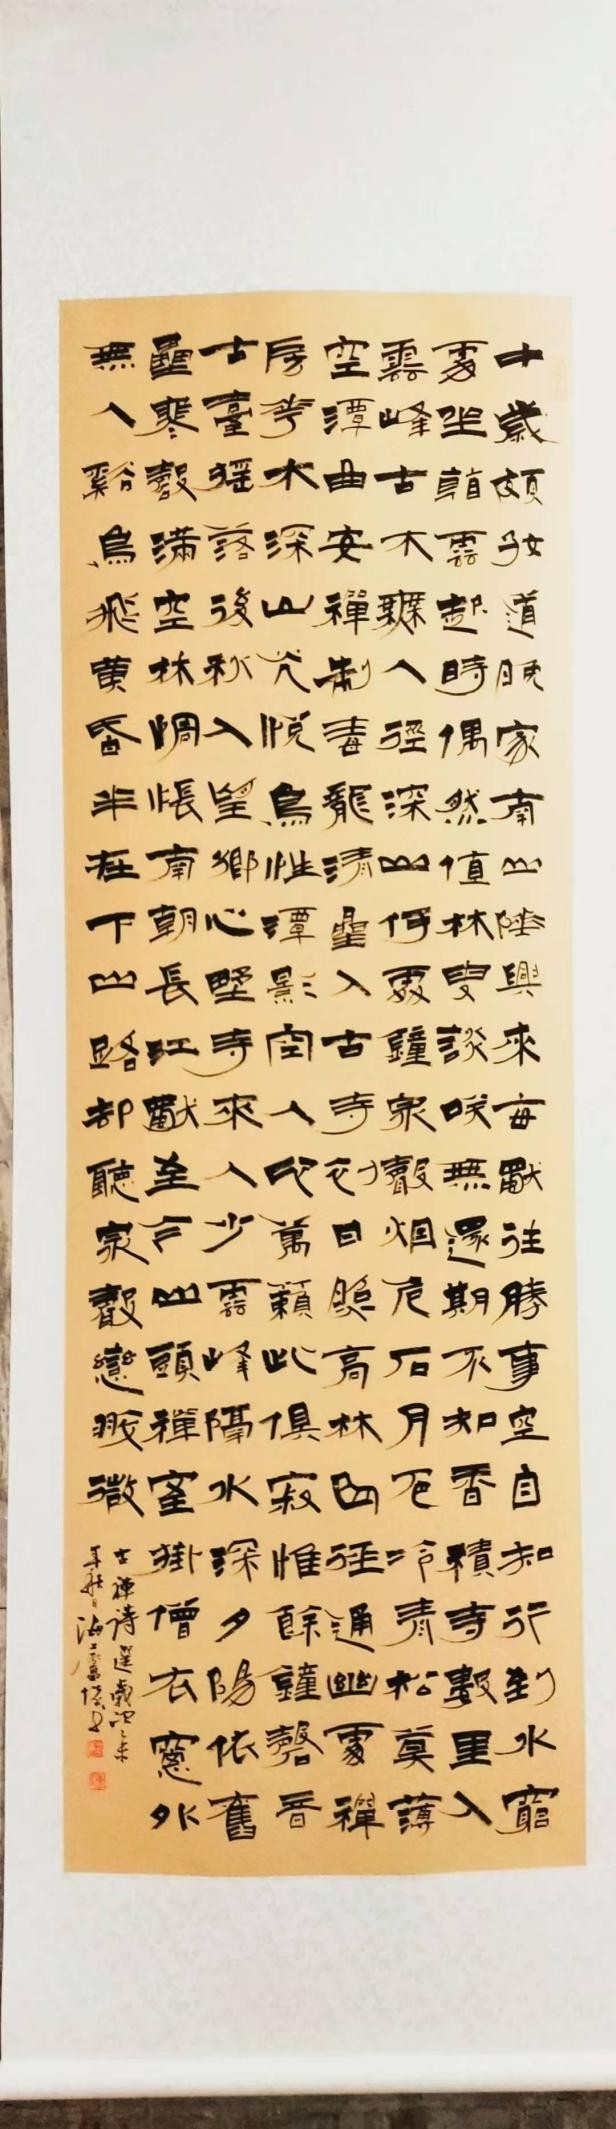 中歲頗好道晚家南山陲興來每獨往勝事空自知行到水窮
處坐看雲起時偶然值林叟談笑無還期不知香積寺數里入
雲峰古木無人徑深山何處鐘泉聲咽危石月色冷青松莫薄
空潭曲安禪制毒龍清晨入古寺初日照高林曲徑通幽處禪
房花木深山光悅鳥性潭影空人心萬籟此俱寂惟餘鐘磬音
古臺搖落後秋入望鄉心野寺來人少雲峰隔水深夕陽依舊
壘寒磬滿空林惆悵南朝長江獨至今山頭禪室掛僧衣窗外
無人谿鳥飛黃昏半在下山路却聽泉聲戀翠微
古禪詩選歲次
年秋月海上